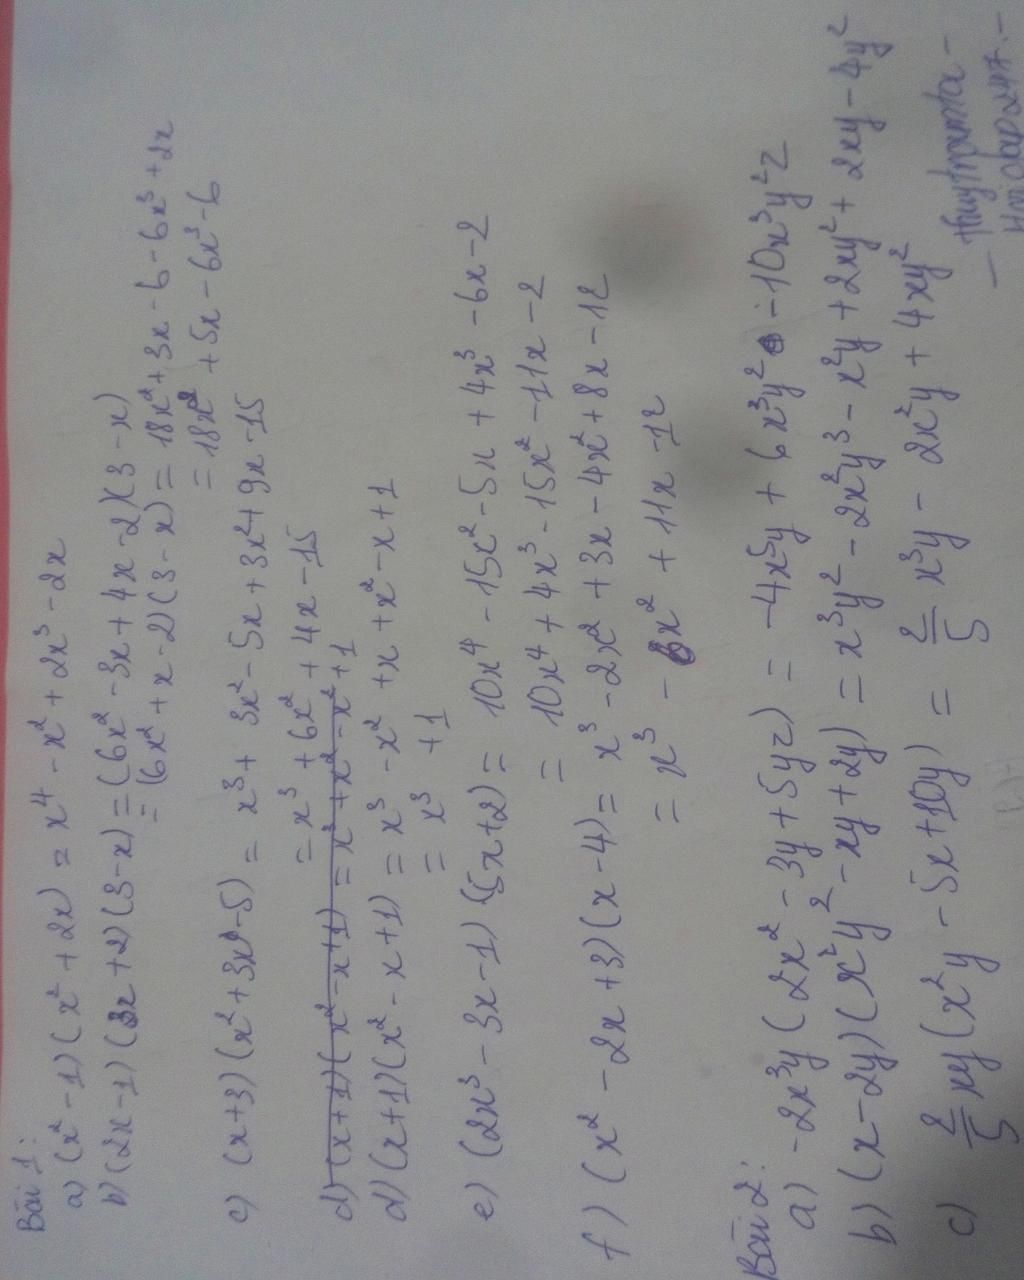 Bài 1:
a) (x² - 1)(x² + 2x) = x⁴ - x² + 2x³ - 2x
b) (2x - 1)(3x + 2)(3 - x) = (6x² - 3x + 4x - 2)(3 - x)
= (6x² + x - 2)(3 - x) = 18x² + 3x - 6 - 6x³ + 2x
= 18x² + 5x - 6x³ - 6
c) (x + 3)(x² + 3x - 5) = x³ + 3x² - 5x + 3x² + 9x - 15
= x³ + 6x² + 4x - 15
d) (x + 1)(x² - x + 1) = x³ + x² - x² + 1
d) (x + 1)(x² - x + 1) = x³ - x² + x + x² - x + 1
= x³ + 1
e) (2x³ - 3x - 1)(5x + 2) = 10x⁴ - 15x² - 5x + 4x³ - 6x - 2
= 10x⁴ + 4x³ - 15x² - 11x - 2
f) (x² - 2x + 3)(x - 4) = x³ - 2x² + 3x - 4x² + 8x - 12
= x³ - 6x² + 11x - 12
Bài 2:
a) -2x³y(2x² - 3y + 5yz) = -4x⁵y + 6x³y² - 10x³y²z
b) (x - 2y)(x²y² - xy + 2y) = x³y² - 2x²y³ - x²y + 2xy² + 2xy - 4y²
c) 2/5 xy(x²y - 5x + 10y) = 2/5 x³y - 2x²y + 4xy²